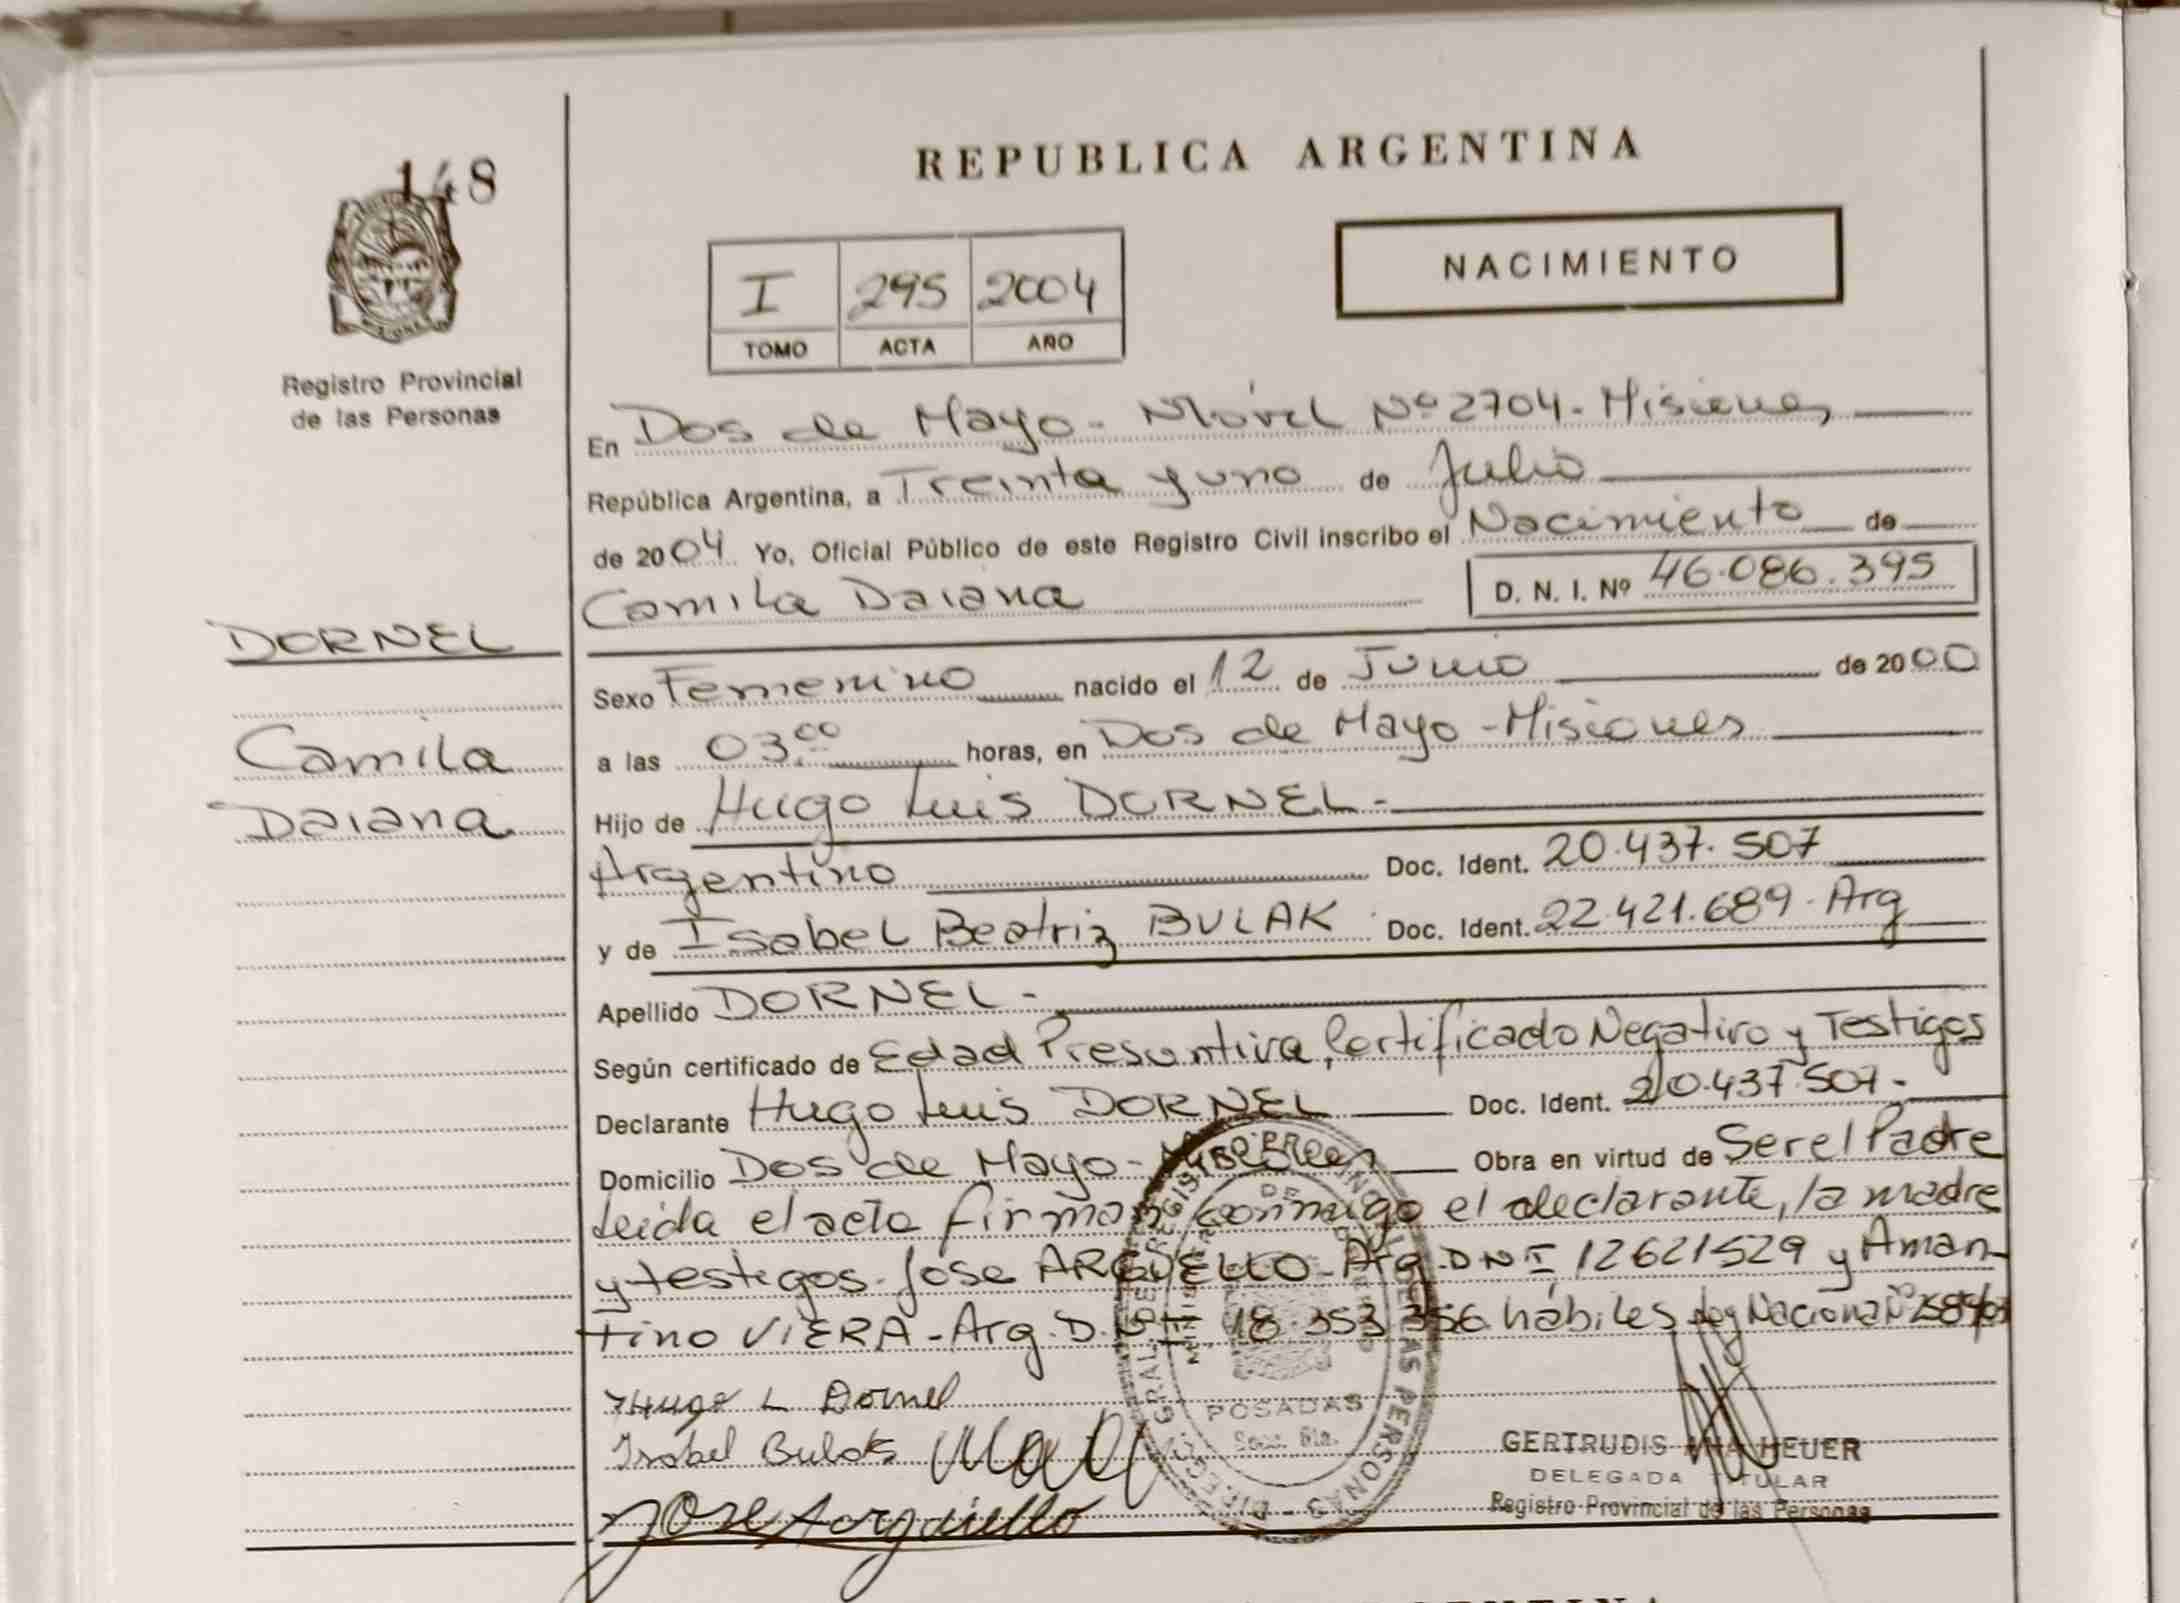 148
REPUBLICA ARGENTINA
NACIMIENTO
I 295 2004
TOMO ACTA AÑO
Registro Provincial
de las Personas
En Dos de Mayo - Móvil Nº 2704 - Misiones
República Argentina, a Treinta y uno de Julio
de 2004 Yo, Oficial Público de este Registro Civil inscribo el Nacimiento de
Camila Daiana D. N. I. Nº 46.086.395
DORNEL
Camila
Daiana
Sexo Femenino nacido el 12 de Junio de 2000
a las 03.00 horas, en Dos de Mayo - Misiones
Hijo de Hugo Luis DORNEL -
Argentino Doc. Ident. 20.437.507
y de Isabel Beatriz BULAK Doc. Ident. 22.421.689 - Arg
Apellido DORNEL -
Según certificado de Edad Presuntiva, Certificado Negativo y Testigos
Declarante Hugo Luis DORNEL Doc. Ident. 20.437.507 -
Domicilio Dos de Mayo - Misiones Obra en virtud de Ser el Padre
Leida el acta firman conmigo el declarante, la madre
y testigos. Jose ARGUELLO - Arg. DNI 12621529 y Aman-
tino VIERA - Arg. D.N.I 18.353.356 hábiles Ley Nacional Nº
Hugo L Dornel
Isabel Bulak
Jose Arguello
DE
POSADAS
GERTRUDIS ANA HEUER
DELEGADA TITULAR
Registro Provincial de las Personas